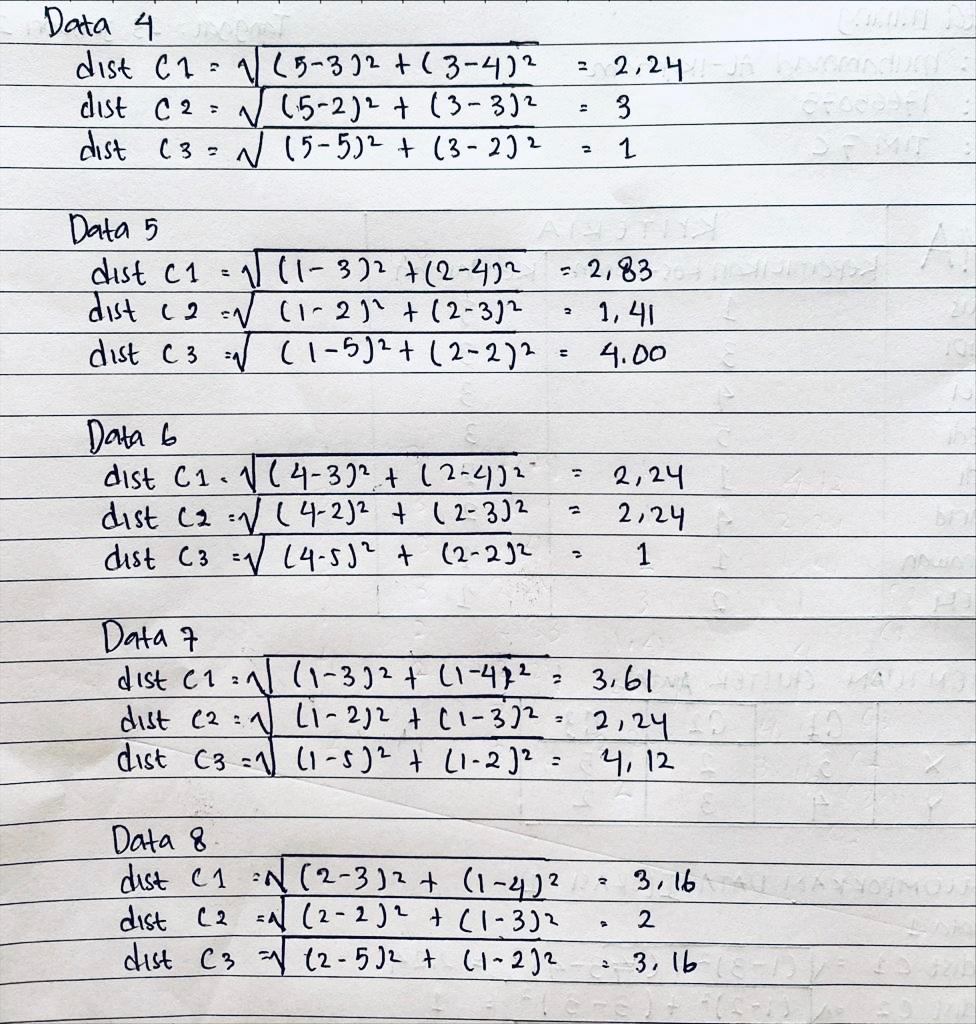 Data 4
dist C1 = √(5-3)² + (3-4)² = 2,24
dist C2 = √(5-2)² + (3-3)² = 3
dist C3 = √(5-5)² + (3-2)² = 1
Data 5
dist C1 = √(1-3)² + (2-4)² = 2,83
dist C2 = √(1-2)² + (2-3)² = 1,41
dist C3 = √(1-5)² + (2-2)² = 4.00
Data 6
dist C1 = √(4-3)² + (2-4)² = 2,24
dist C2 = √(4-2)² + (2-3)² = 2,24
dist C3 = √(4-5)² + (2-2)² = 1
Data 7
dist C1 = √(1-3)² + (1-4)² = 3,61
dist C2 = √(1-2)² + (1-3)² = 2,24
dist C3 = √(1-5)² + (1-2)² = 4,12
Data 8
dist C1 = √(2-3)² + (1-4)² = 3,16
dist C2 = √(2-2)² + (1-3)² = 2
dist C3 = √(2-5)² + (1-2)² = 3,16